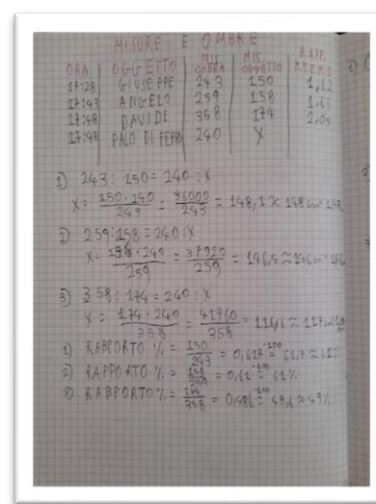 MISURE E OMBRE
ORA OGGETTO MIS. OMBRA MIS. OGGETTO RAPP.
17:28 GIUSEPPE 243 150 1,62
17:43 ANGELO 259 158 1,63
17:48 DAVIDE 358 174 2,05
17:48 PALO DI FERRO 240 X
1) 243 : 150 = 240 : X
X = 150 · 240 / 243 = 36000 / 243 = 148,1 ≈ 148 cm
2) 259 : 158 = 240 : X
X = 158 · 240 / 259 = 37920 / 259 = 146,4 ≈ 146 cm
3) 358 : 174 = 240 : X
X = 174 · 240 / 358 = 41760 / 358 = 116,6 ≈ 117 cm
1) RAPPORTO % = 150 / 243 = 0,617 ·100 = 61,7 ≈ 62%
2) RAPPORTO % = 158 / 259 = 0,61 ·100 = 61%
3) RAPPORTO % = 174 / 358 = 0,486 ·100 = 48,6 ≈ 49%